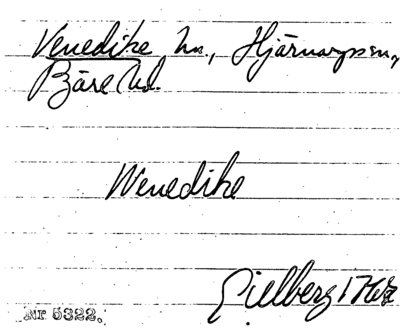 Venedike hn., Hjärnarpssn,
Bjäre hd.
Wenedike
Gillberg 1767
Nr 5322.